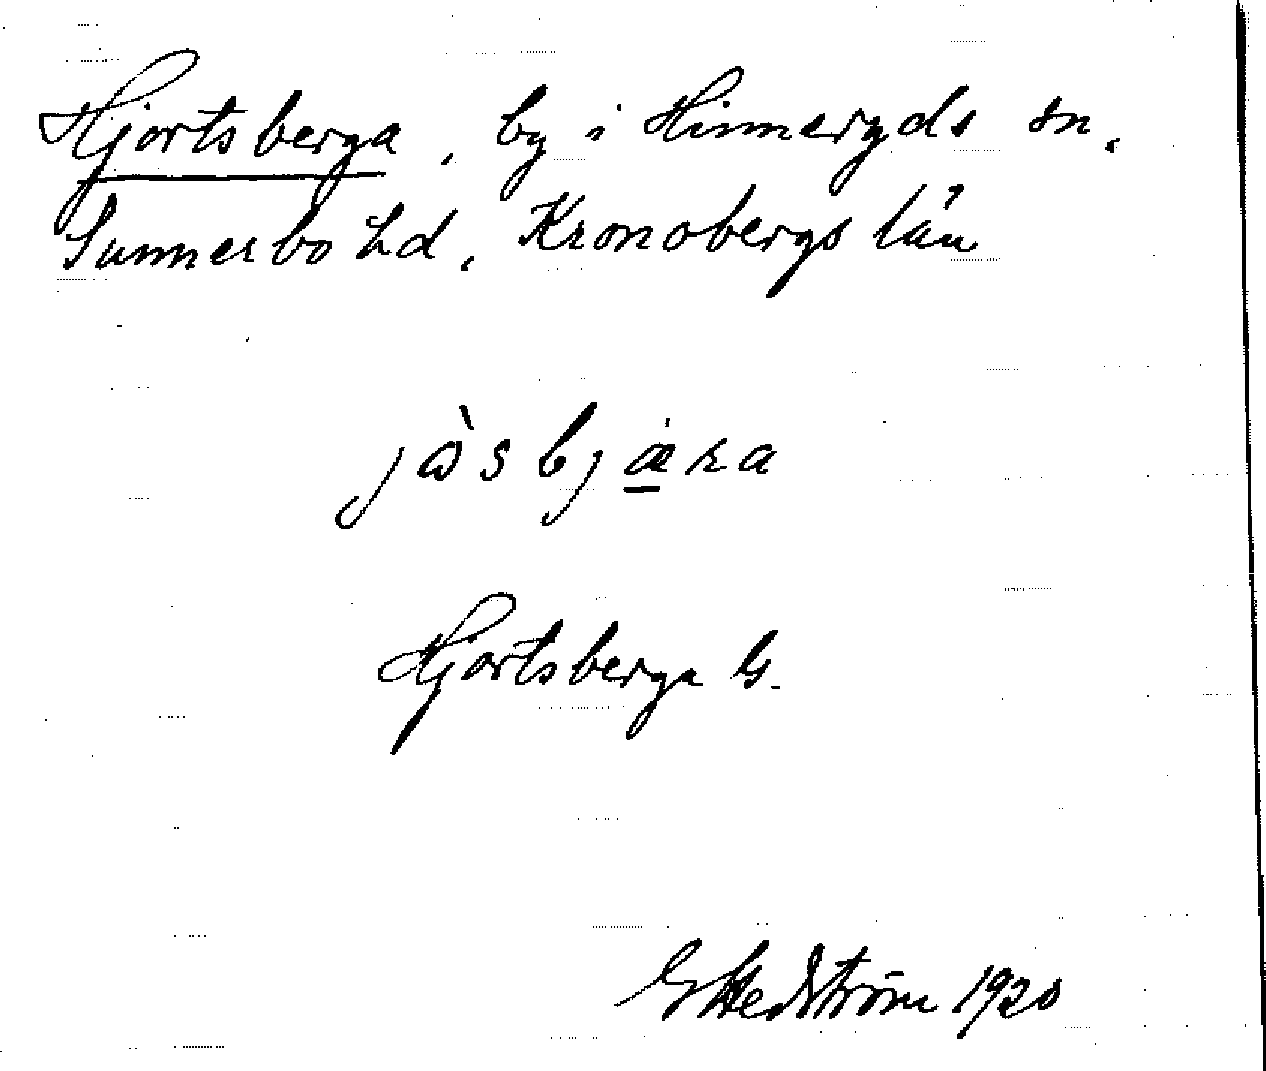 Hjortsberga, by i Hinneryds sn,
Sunnerbo hd, Kronobergs län
jɷ̀sbjæ̱̇ra
Hjortsberga G.
G Hedström 1920